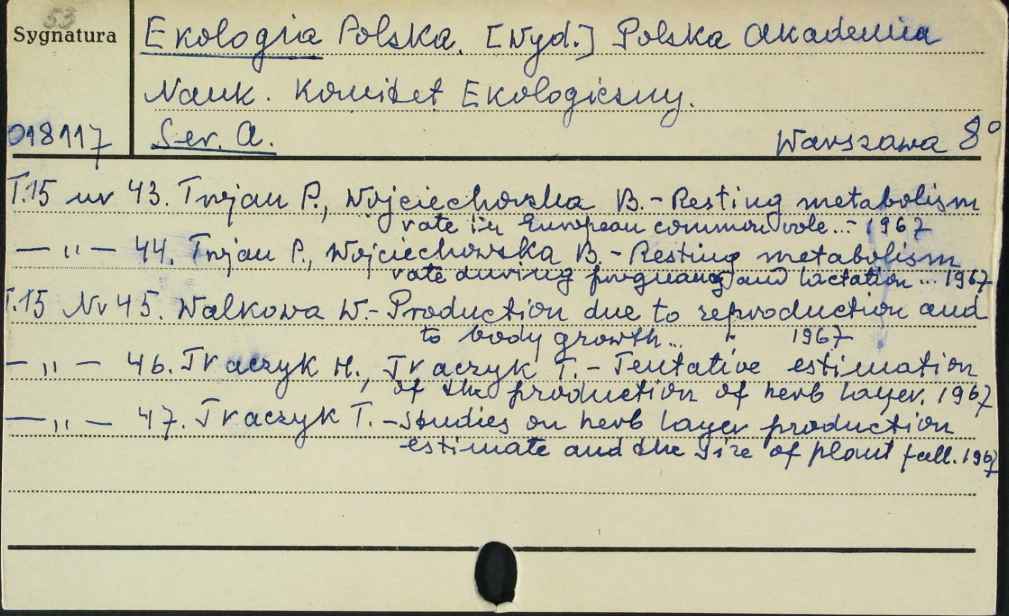 53
Sygnatura
Ekologia Polska. [Wyd.] Polska Akademia
Nauk. Komitet Ekologiczny.
018117 Ser. A. Warszawa 8°
T.15 nr 43. Trojan P., Wojciechowska B. - Resting metabolism
rate in European common vole... - 1967
— „ — 44. Trojan P., Wojciechowska B. - Resting metabolism
rate during and lactation ... 1967
T.15 Nr 45. Walkowa W. - Production due to reproduction and
to body growth... 1967
— „ — 46. Traczyk H., Traczyk T. - Tentative estimation
of the production of herb layer. 1967
— „ — 47. Traczyk T. - Studies on herb layer production
estimate and the size of plant fall. 1967